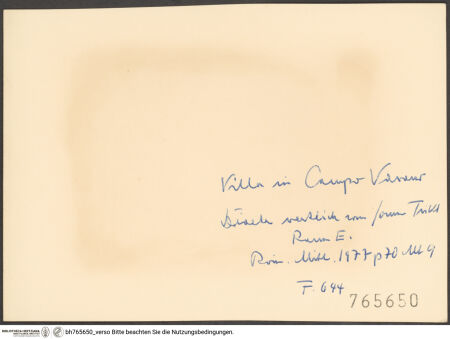 Villa in Campo Varano
westlich vom
Raum E.
Röm. Mitt. 1977 p 70
F. 644
765650
BIBLIOTHECA HERTZIANA bh765650_verso Bitte beachten Sie die Nutzungsbedingungen.